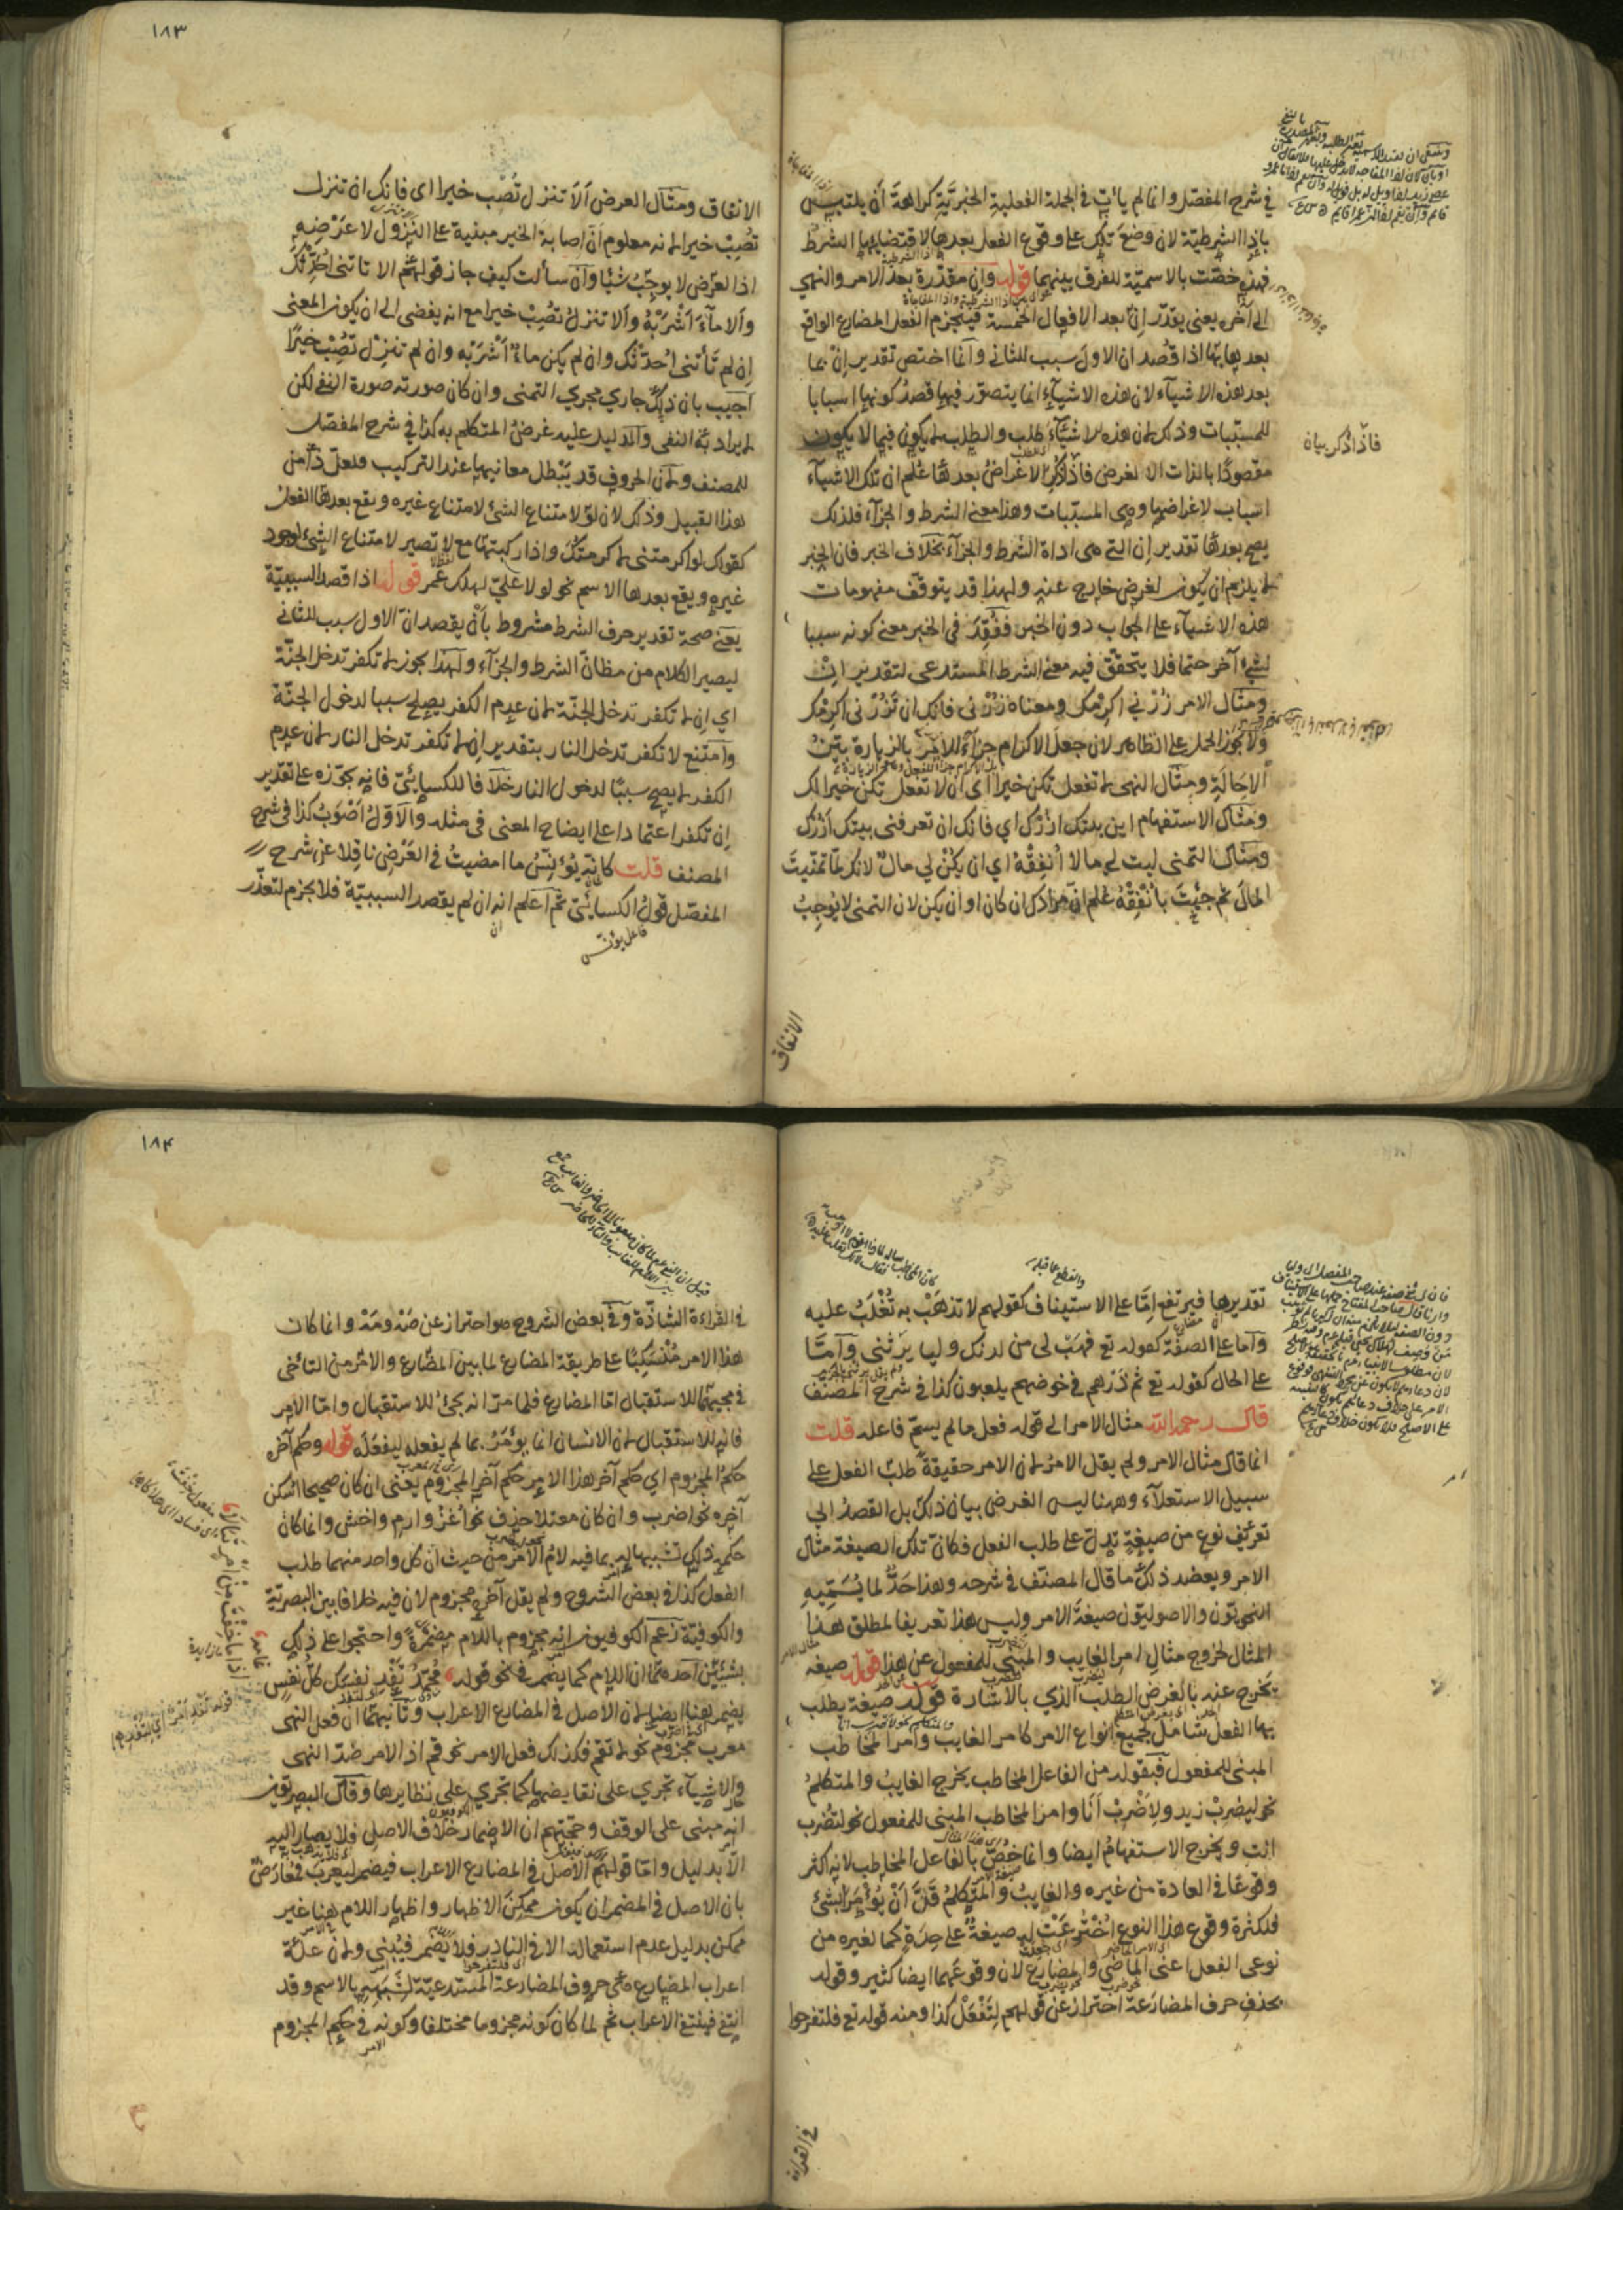 في شرح المفصل وانما لم يأت في الجملة الفعلية الخبرية كراهة أن يلتبس
باذا الشرطية لان وضع تلك على وقوع الفعل بعدها لاقتضائها الشرط
فهذه خصّت بالاسمية للفرق بينهما قوله وان مقدرة بعد الامر والنهي
الى آخره يعنى يقدّر إن بعد الافعال الخمسة فينجزم الفعل المضارع الواقع
بعدها بها اذا قُصد ان الاول سبب للثانى وانما اختص تقدير إن بما
بعد هذه الاشياء لان هذه الاشياء انما يتصور فيها قصدُ كونها اسبابا
للمسبّبات وذلك لان هذه الاشياء طلب والطلب لا يكون فيما لا يكون
مقصودًا بالذات الا لغرض فاذا ذكر الاغراض بعدها عُلم ان تلك الاشياء
اسباب لاغراضها وهى المسبّبات وهذا معنى الشرط والجزاء فلذلك
يصح بعدها تقدير إن التى هى اداة الشرط والجزاء بخلاف الخبر فان الخبر
لا يلزم ان يكون لغرض خارج عنه ولهذا قد يتوقف مفهومات
هذه الاشياء على الجواب دون الخبر ففُقِد فى الخبر معنى كونه سببا
لشئ آخر حتما فلا يتحقق فيه معنى الشرط المستدعى لتقدير إن
ومثال الامر زُرْني اكرمْك ومعناه زرْنى فانك ان تَزُرْنى اكرمْك
ولا يجوز الحمل على الظاهر لان جعل الاكرام جزاءً للامر بالزيارة بيّنُ
الإحالة ومثال النهى لا تفعل يكن خيرا اى ان لا تفعل يكن خيرا لك
ومثال الاستفهام اين بيتك ازرْك اي فانك ان تعرفنى بيتك ازرْك
ومثال التمنى ليت لي مالا أنفقْهُ اي ان يكنْ لي مالٌ لانك لمّا تمنّيتَ
المالَ ثم جئتَ بأنفقْهُ عُلم انّ مرادك ان كان او ان يكن لان التمنى لا يوجبُ
فاذا ذكر بيان
الانفاق
١٨٣
الانفاق ومثال العرض ألَا تنزل تُصِبْ خيرا اى فانك ان تنزل
تُصِبْ خيرا لانه معلوم انّ اصابة الخير مبنية على النزول لا عَرْضِه
اذ العرْض لا يوجِبُ شيئا وان سألت كيف جاز قولهم الا تاتنى احدّثْك
وألا ماءَ أشْرَبْهُ وألا تنزلْ تُصِبْ خيرا مع انه يفضى الى ان يكون المعنى
إن لم تأتنى اُحدّثْك وان لم يكن ماءٌ أشْرَبْه وان لم تنزل تُصِبْ خيرًا
اجيب بان ذلك جاري مجري التمنى وان كان صورته صورة النفى لكن
لا يراد به النفى والدليل عليه غرضُ المتكلم به كذا في شرح المفصل
للمصنف ولان الحروف قد يَبْطل معانيها عند التركيب فلعلّ ذا من
هذا القبيل وذلك لان لو لامتناع الشئ لامتناع غيره ويقع بعدها الفعل
كقولك لو اكرمتنى لاكرمتُك واذا ركبتها مع لا تصير لامتناع الشئ لوجود
غيره ويقع بعدها الاسم نحو لولا عليٌّ لهلك عمر قوله اذا قصد السببيّة
يعنى صحة تقدير حرف الشرط مشروط بأنْ يقصد انّ الاول سبب للثانى
ليصير الكلام من مظانّ الشرط والجزاء ولهذا يجوز لا تكفر تدخل الجنّة
اي إن لا تكفر تدخل الجنّة لان عدم الكفر يصلح سببا لدخول الجنّة
وامتنع لا تكفر تدخل النار بتقدير ان لا تكفر تدخل النار لان عدم
الكفر لا يصح سببًا لدخول النار خلافا للكسائىّ فانه يجوّزه على تقدير
إن تكفر اعتمادا على ايضاح المعنى فى مثله والاوّلُ أصْوَبُ كذا فى شرح
المصنف قلت كانه يُؤنِسُ ما امضيتُ فى العَرْض ناقلا عن شرح
المفصّل قولُ الكسائىّ ثم اعلم انه ان لم يقصد السببيّة فلا يجزم لتعذّر
فاعل يونس
تقديرها فيرتفع إمّا على الاستيناف كقولهم لا تذهَبْ به تُغْلَبُ عليه
وامّا على الصفة كقوله تع فهَبْ لى من لدنك وليا يرثُنى وامّا
على الحال كقوله تع ثم ذرهم فى خوضهم يلعبون كذا فى شرح المصنف
قال رحمه الله مثال الامر الى قوله فعل ما لم يسمّ فاعله قلت
انما قال مثال الامر ولم يقل الامرُ لان الامر حقيقةً طلبُ الفعل على
سبيل الاستعلاء وههنا ليس الغرض بيان ذلك بل القصدُ الى
تعريف نوع من صيغةٍ تدلّ على طلب الفعل فكانّ تلك الصيغة مثال
الامر ويعضد ذلك ما قال المصنف فى شرحه وهذا حَدٌّ لما يُسَمّيه
النحويّون والاصوليّون صيغةَ الامر وليس هذا تعريفا لمطلق هذا
المثال لخروج مثالِ امر الغايب والمبنى للمفعول عن هذا قوله صيغه
يخرج عنه بالغرض الطلب الذي بالاشارة قوله صيغة يطلب
بها الفعل شامل لجميع انواع الامر كامر الغايب وامر المخاطب
المبنى للمفعول فبقوله من الفاعل المخاطب يخرج الغايبُ والمتكلمُ
نحو ليضربْ زيد ولِاَضْرِبْ أنَا وامر المخاطب المبنى للمفعول نحو لتُضرب
انت ويخرج الاستفهامُ ايضا وانما خُصّ بالفاعل المخاطب لانه اكثر
وقوعًا فى العادة من غيره والغايبُ والمتكلمُ قَلَّ أنْ يُؤمَرا بشئ
فلكثرة وقوع هذا النوع اخْتُرِعَتْ له صيغةٌ على حِدَةٍ كما لغيره من
نوعى الفعل اعنى الماضي والمضارع لان وقوعهما ايضا كثير وقوله
بحذف حرف المضارعة احتراز عن قولهم لِتَفْعَلْ كذا ومنه قوله تع فلتفرحوا
في القراءة
١٨٤
فى القراءة الشاذّة وفى بعض الشروح هو احتراز عن صَهْ ومَهْ وانما كان
هذا الامر مُنْسَبِكًا على طريقة المضارع لما بين المضارع والامر من التآخى
فى مجيئهما للاستقبال امّا المضارع فلما مرّ انه يجئ للاستقبال وامّا الامر
فانه للاستقبال لان الانسان انما يؤمَرُ بما لم يفعله ليفعَله قوله وحكم آخره
حكمُ المجزوم اي حكم آخر هذا الامر حكم آخر المجزوم يعنى ان كان صحيحا اسكن
آخره نحو اضرب وان كان معتلا حذف نحو اُغزُ وارمِ واخش وانما كان
حكمه ذلك تشبيها له بما فيه لامُ الامر من حيث ان كل واحد منهما طلب
الفعل كذا فى بعض الشروح ولم يقل آخره مجزوم لان فيه خلافا بين البصرية
والكوفيّة زعم الكوفيون انه مجزوم باللام مضمرةً واحتجوا على ذلك
بشيئين احدهما ان اللام كما يضمر فى نحو قوله محمّدُ تفْدِ نفسَك كلّ نفسٍ
يضمر ههنا ايضا لان الاصل فى المضارع الاعراب وثانيهما ان فعل النهى
معرب مجزوم نحو لا تقم فكذلك فعل الامر نحو قم اذ الامر ضدّ النهى
والاشياء تجرى على نقايضها كما تجري على نظايرها وقال البصريّون
انه مبنى على الوقف وحجّتهم ان الاضمار خلاف الاصل فلا يصار اليه
الا بدليل وامّا قولهم الاصل فى المضارع الاعراب فيضمر ليعرب فمُعارَضٌ
بان الاصل فى المضمر ان يكون ممكن الاظهار واظهار اللام هنا غير
ممكن بدليل عدم استعماله الا فى النادر فلا يُضمر فيُبنى ولان علّة
اعراب المضارع هى حروف المضارعة المستدعيّة لشَبَهِه بالاسم وقد
انتفى فينتفى الاعراب ثم لما كان كونه مجزوما مختلفا وكونه فى حكم المجزوم